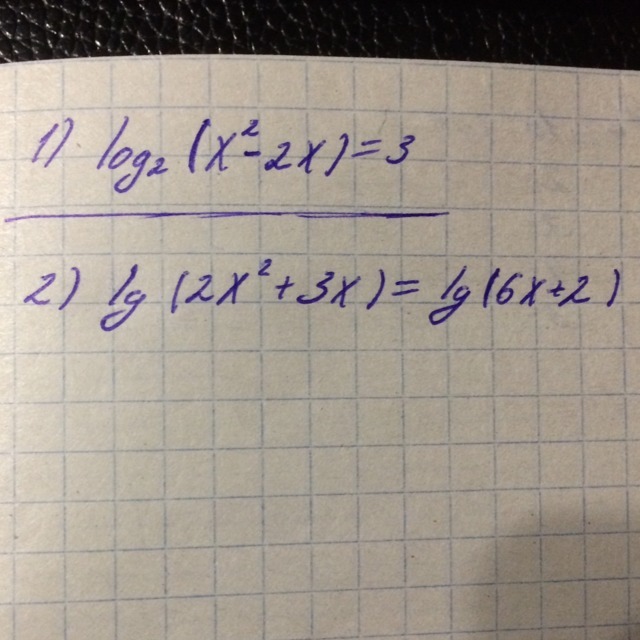 1) log₂ (x²-2x)=3
2) lg (2x²+3x)= lg(6x+2)